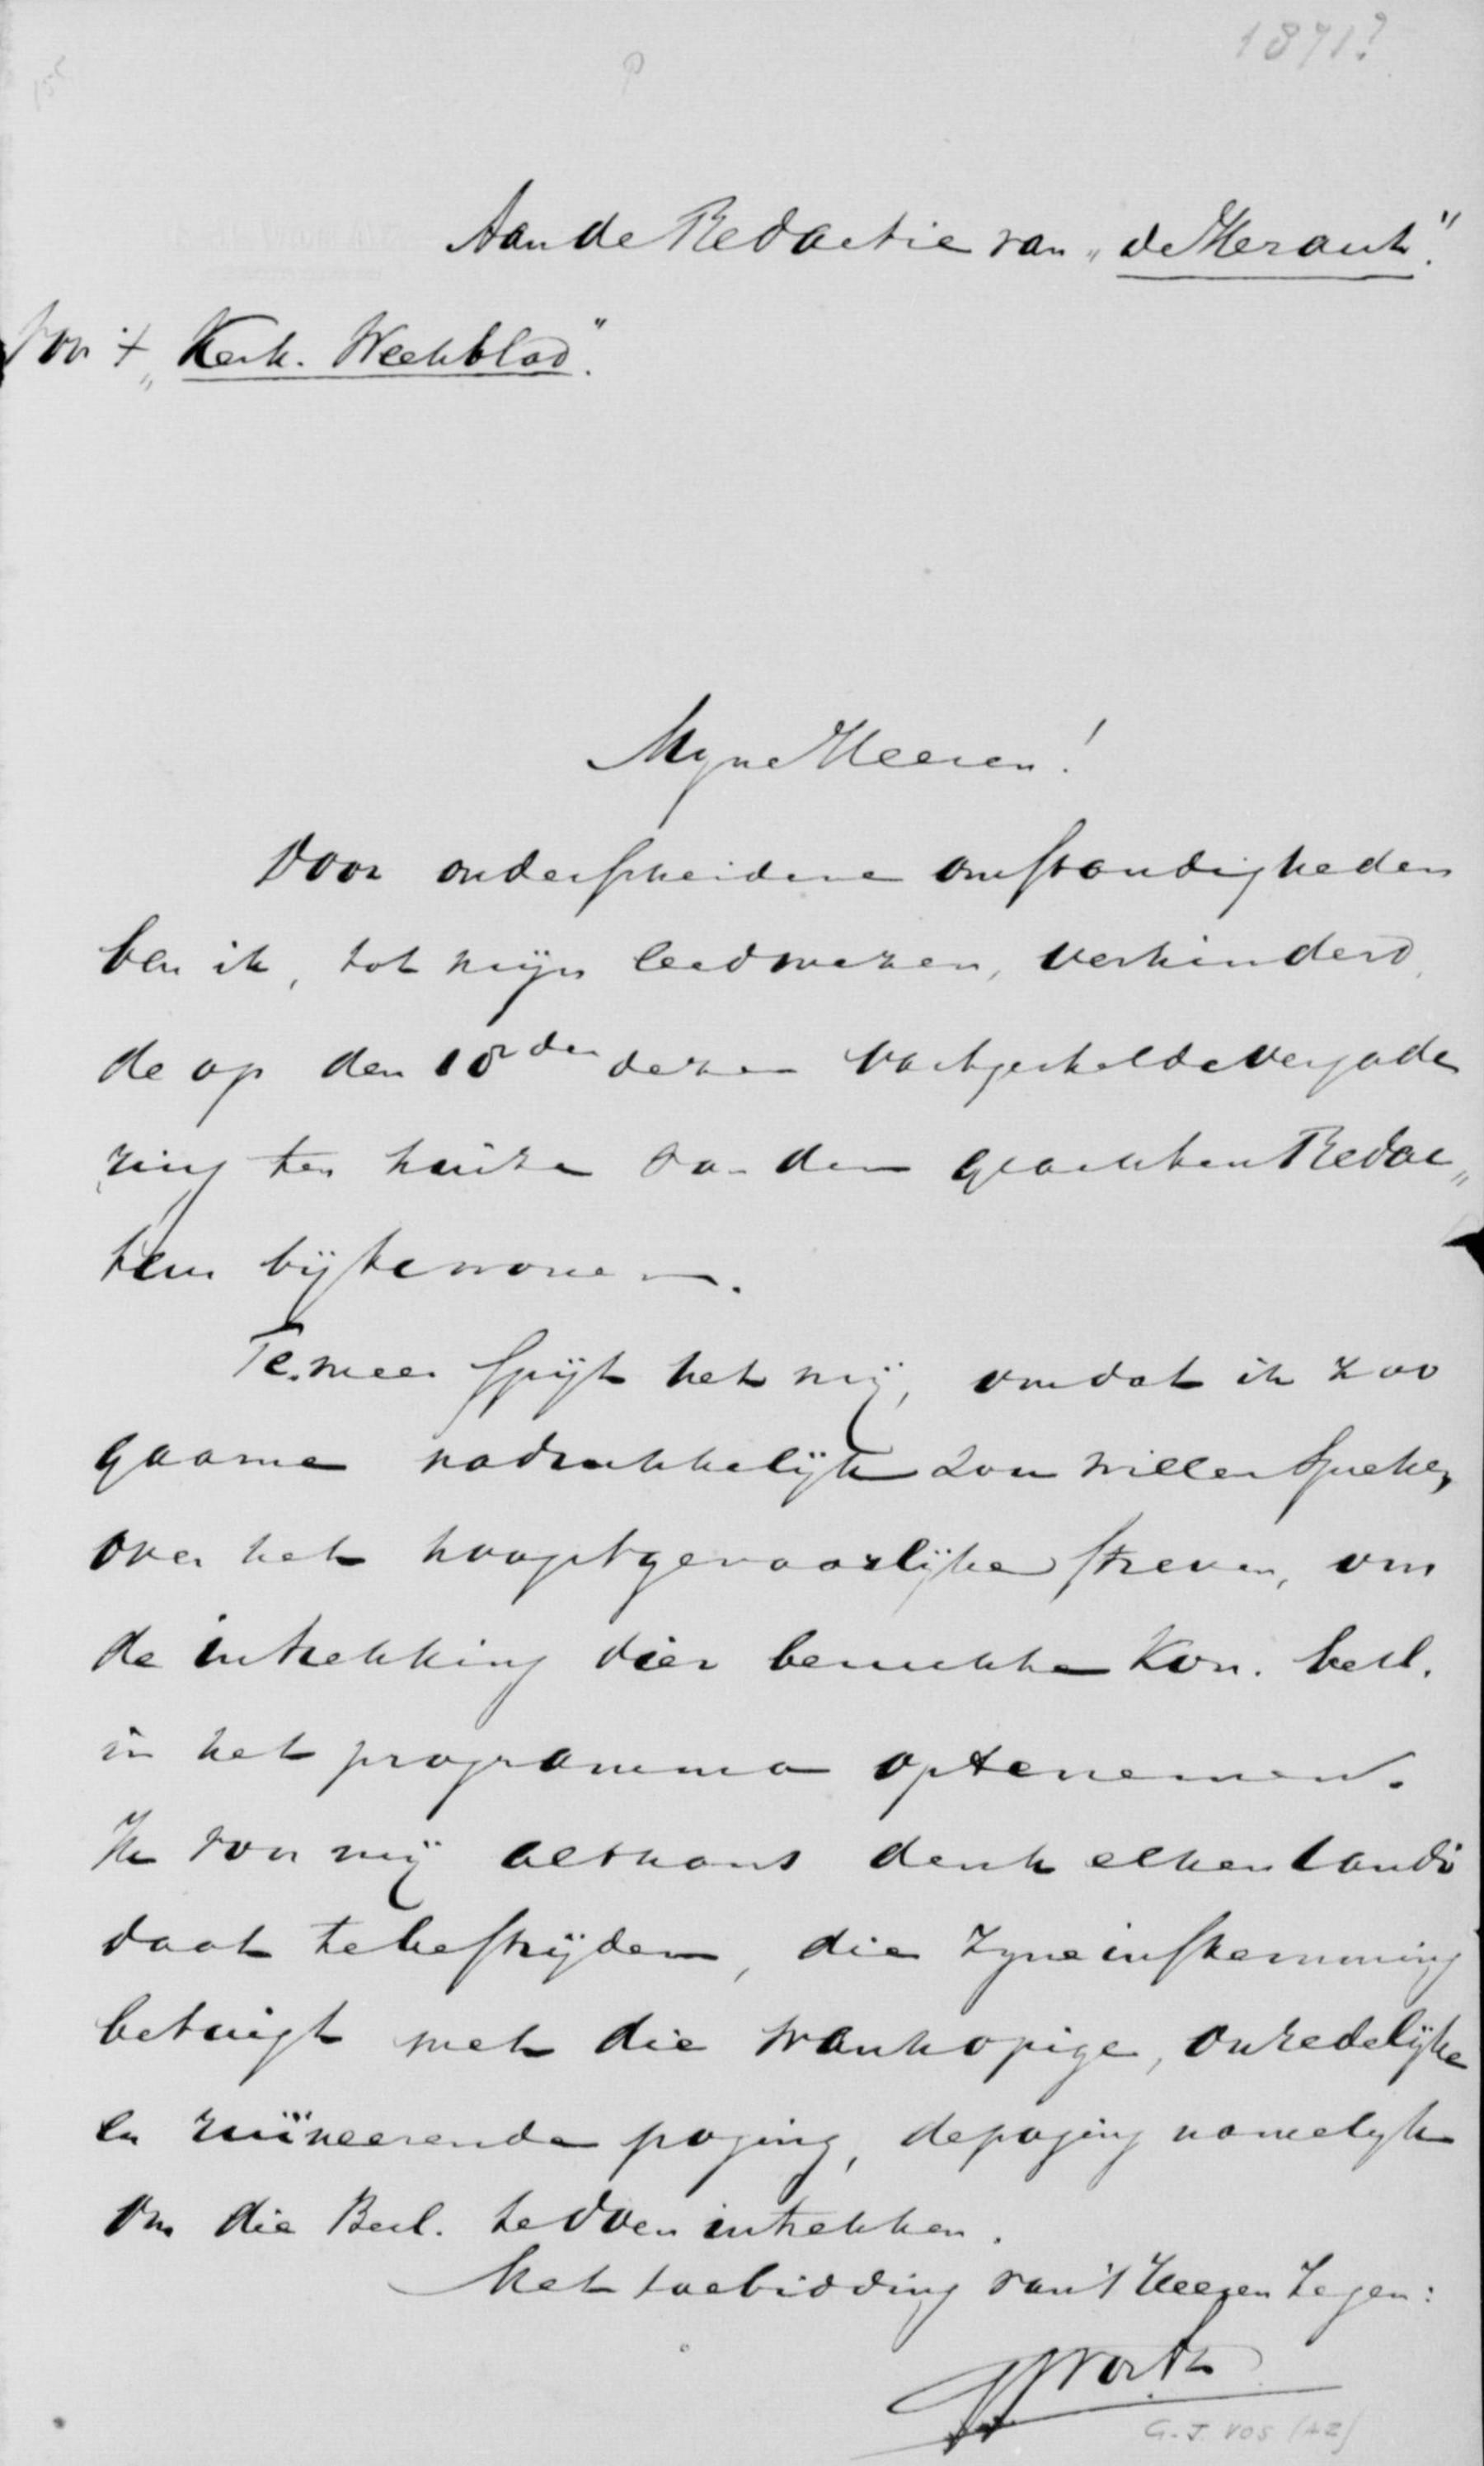 1871?
Aan de Redactie van „de Heraut".
voor + „Kerk. Weekblad".
Myne Heeren!
Door onderscheidene omstandigheden
ben ik, tot mijn leedwezen, verhinderd
de op den 18den dezer vastgestelde vergade
ring ten huize van den geachten Redac„
teur bijtewonen.
Te meer spijt het mij, omdat ik zoo
gaarne nadrukkelijk zou willen spreken
over het hoogstgevaarlijke streven, om
de intrekking dier beruchte Kon. besl.
in het programma optenemen.
Ik voor mij althans denk elken candi
daat te bestrijden, die zyne instemming
betuigt met die wanhopige, onredelijke
en ruïneerende poging, de poging namelyk
om die Besl. te doen intrekken.
Met toebidding van 's Heeren Zegen:
GJVos Az
G. J. VOS (AZ)